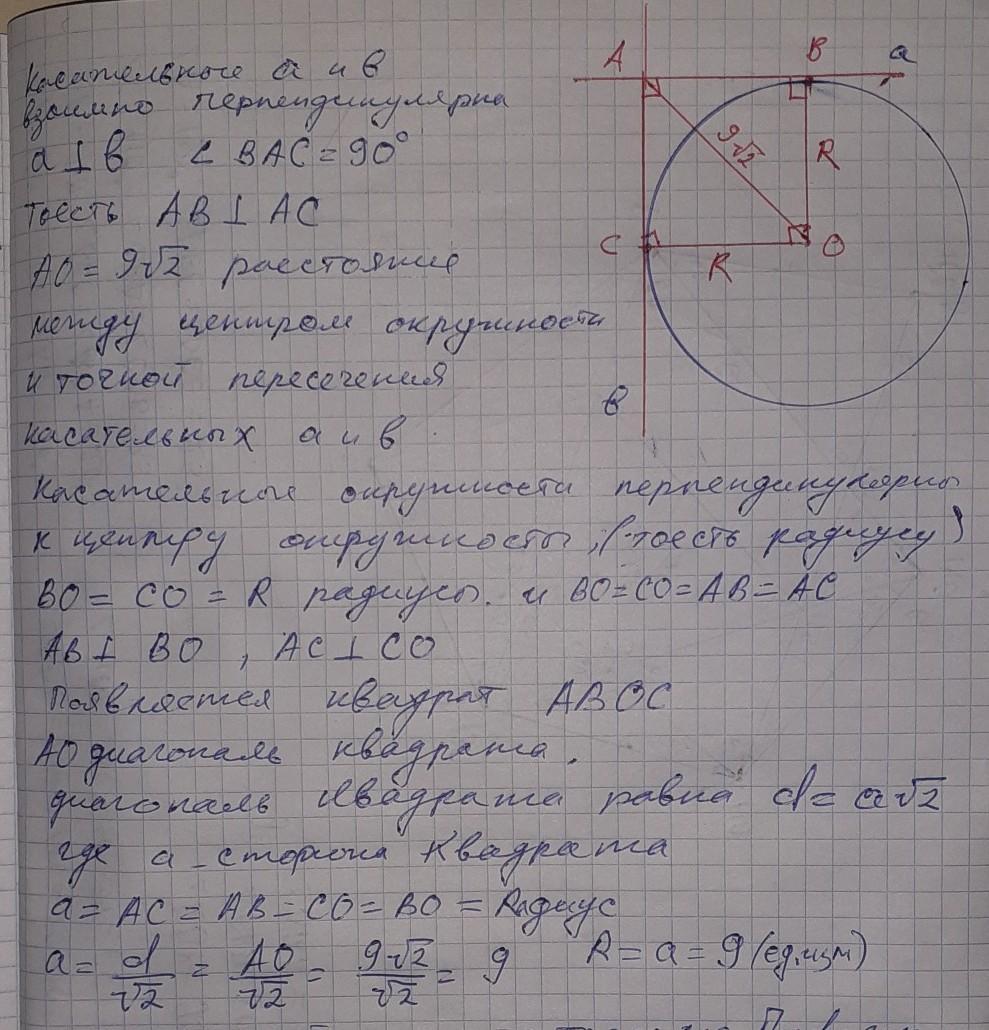 A B a
Касательные а и в
взаимно перпендикулярна
a ⊥ в ∠ BAC = 90°
тоесть AB ⊥ AC
9√2 R
C R O
AO = 9√2 расстояние
между центром окружности
и точкой пересечения
в
касательных а и в.
Касательные окружности перпендикулярны
к центру окружности, (тоесть радиусу)
BO = CO = R радиусы. и BO = CO = AB = AC
AB ⊥ BO , AC ⊥ CO
Появляется квадрат ABOC
AO диагональ квадрата.
диагональ квадрата равна d = a√2
где а - сторона квадрата
a = AC = AB = CO = BO = Радиус
a = d/√2 = AO/√2 = 9√2/√2 = 9 R = a = 9 (ед.изм)